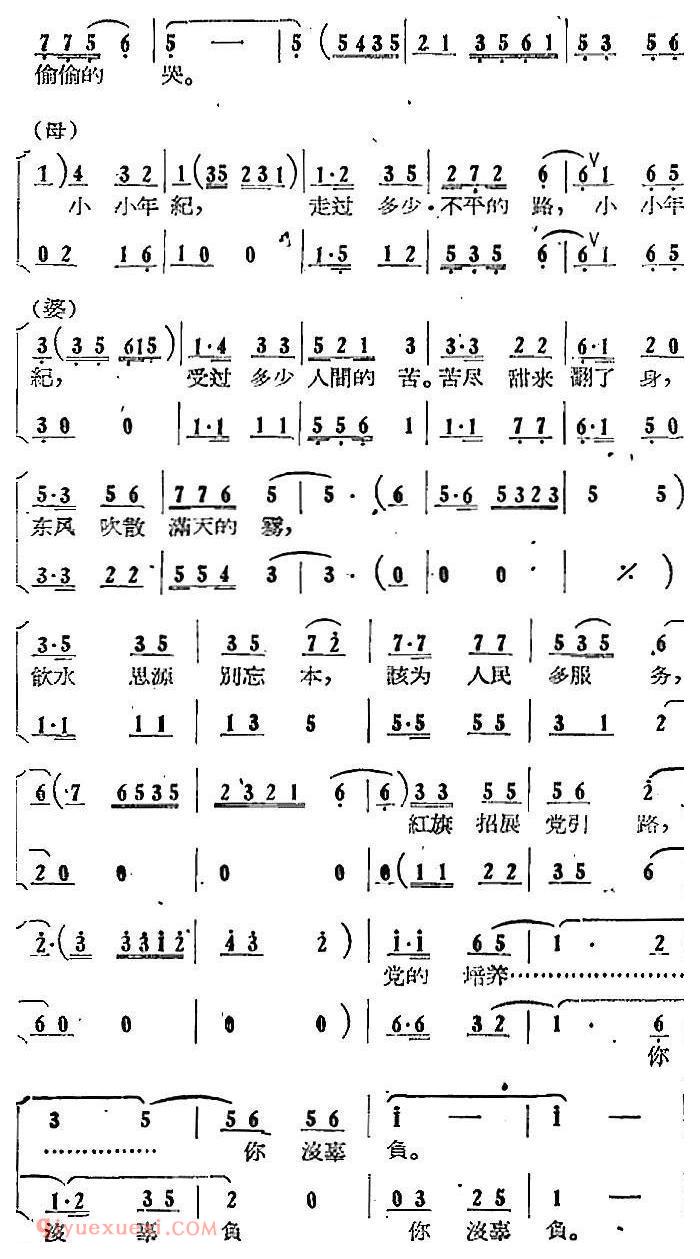 7 7 5 6 | 5 — | 5 (5435 | 21 3561 | 53 56
偷偷的 哭。
(母)
1) 4 32 | 1 (35 231) | 1·2 35 | 272 6 | 6 V 1 65
小 小年 紀, 走过 多少 不平的 路, 小 小年
02 16 | 1 0 0 | 1·5 12 | 535 6 | 6 V 1 65
(婆)
3 (35 615) | 1·4 33 | 521 3 | 3·3 22 | 6·1 20
紀, 受过 多少 人間的 苦。苦尽 甜来 翻了 身,
30 0 | 1·1 11 | 556 1 | 1·1 77 | 6·1 50
5·3 56 | 776 5 | 5· (6 | 5·6 5323 | 5 5)
东风 吹散 滿天的 雾,
3·3 22 | 554 3 | 3· (0 | 0 0 | ٪ )
3·5 35 | 35 7 2̇ | 7·7 77 | 535 6
飲水 思源 別忘 本, 該为 人民 多服 务,
1·1 11 | 13 5 | 5·5 55 | 3 1 2
6 (·7 6535 | 2321 6 | 6) 33 55 | 56 2̇
紅旗 招展 党引 路,
20 0 | 0 0 | 0 (11 22 | 35 6
2̇· (3̇ 3̇3̇1̇2̇ | 4̇3̇ 2̇) | 1̇·1̇ 65 | 1· 2
党的 培养
60 0 | 0 0) | 6·6 32 | 1· 6
你
3 5 | 56 56 | 1̇ — | 1̇ —
你 沒辜 負。
1·2 35 | 2 0 | 03 25 | 1 —
沒 辜 負 你 沒辜 負。
Qiyuexuexi.com